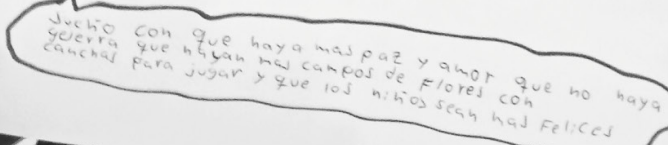 sueño con que haya mas paz y amor que no haya
guerra que hayan mas campos de flores con
canchas para jugar y que los niños sean mas Felices